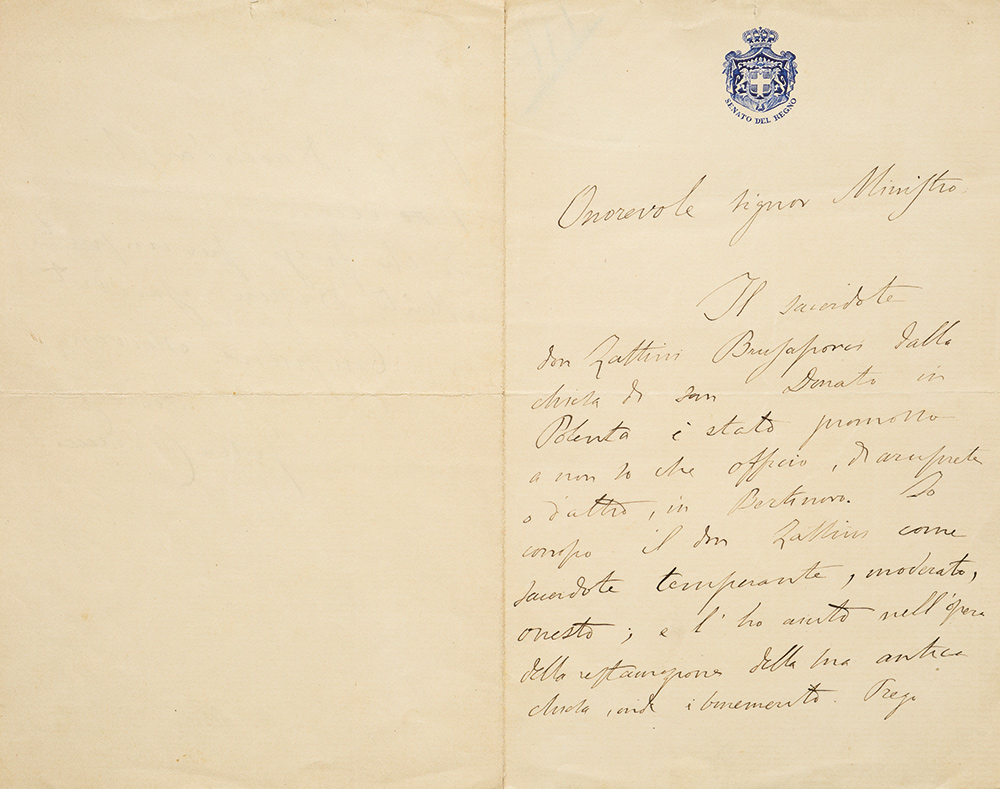 SENATO DEL REGNO
Onorevole signor Ministro
Il sacerdote
don Zattini Brusaporci dalla
chiesa di san Donato in
Polenta è stato promosso
a non so che officio, di arciprete
o d'altro, in Bertinoro. Io
conosco il don Zattini come
sacerdote temperante, moderato,
onesto; e l'ho avuto nell'opera
della restaurazione della sua antica
chiesa, onde è benemerito. Prego